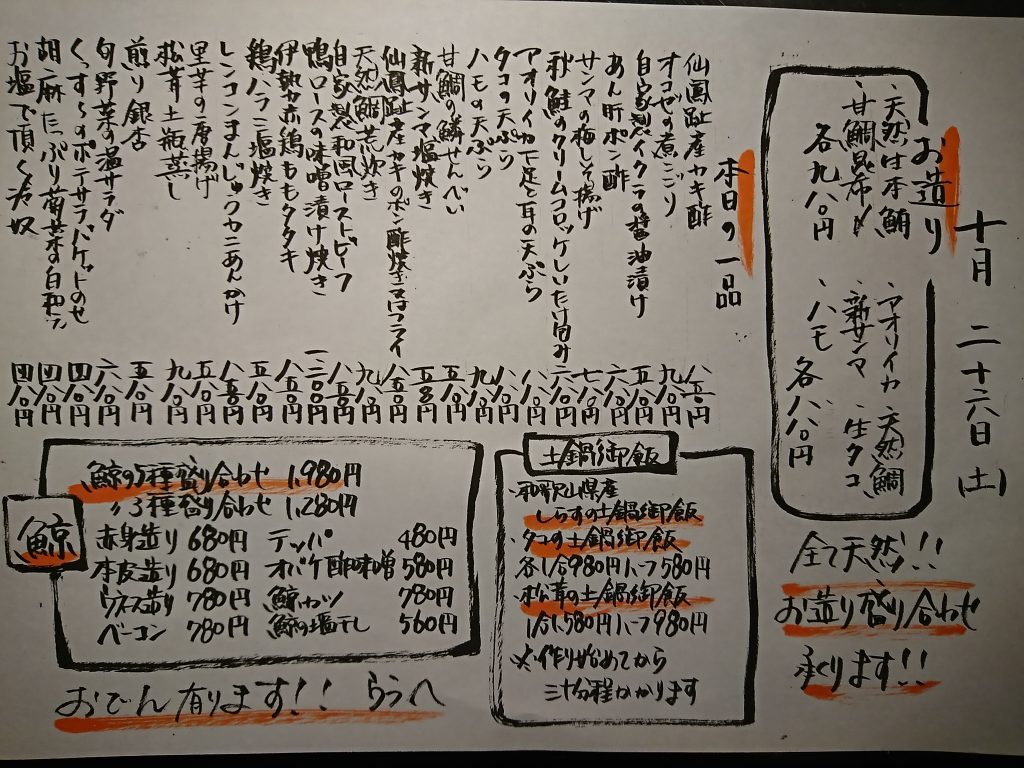 十月二十六日(土)
お造り
・天然は本鮪
・甘鯛昆布〆
各九八〇円
・アオリイカ・天然鯛
・新サンマ・生タコ
・ハモ
各八八〇円
全て天然!!
お造り盛り合わせ
承ります!!
本日の一品
仙鳳趾産カキ酢 八五〇円
オコゼの煮こごり 九八〇円
自家製イクラの醤油漬け 五八〇円
あん肝ポン酢 六八〇円
サンマの梅しそ揚げ 七八〇円
秋鮭のクリームコロッケしいたけ包み 六八〇円
アオリイカ下足と耳の天ぷら 八八〇円
タコの天ぷら 八八〇円
ハモの天ぷら 九八〇円
甘鯛の鱗せんべい 五五〇円
新サンマ塩焼き 五五〇円
仙鳳趾産カキのポン酢焼き又はフライ 八五〇円
天然鯛荒炊き 九八〇円
自家製和風ローストビーフ 八五〇円
鴨ロースの味噌漬け焼き 一二〇〇円
伊勢赤鶏ももタタキ 八五〇円
鶏ハラミ塩焼き 五八〇円
レンコンまんじゅうカニあんかけ 八五〇円
里芋の唐揚げ 五八〇円
松茸土瓶蒸し 九八〇円
煎り銀杏 五八〇円
旬野菜の温サラダ 六八〇円
くっすーのポテサラバケットのせ 四八〇円
胡麻たっぷり菊菜の白和え 四八〇円
お塩で頂く冷奴 四八〇円
土鍋御飯
・和歌山県産
しらすの土鍋御飯
・タコの土鍋御飯
各1合980円ハーフ580円
・松茸の土鍋御飯
1合1,580円ハーフ980円
※作り始めてから
三十分程かかります
鯨
鯨の5種盛り合わせ 1,980円
〃3種盛り合わせ 1,280円
赤身造り 680円 テッパ 480円
本皮造り 680円 オバケ酢味噌 580円
ウネス造り 780円 鯨カツ 780円
ベーコン 780円 鯨の塩干し 560円
おでん有ります!! うらへ